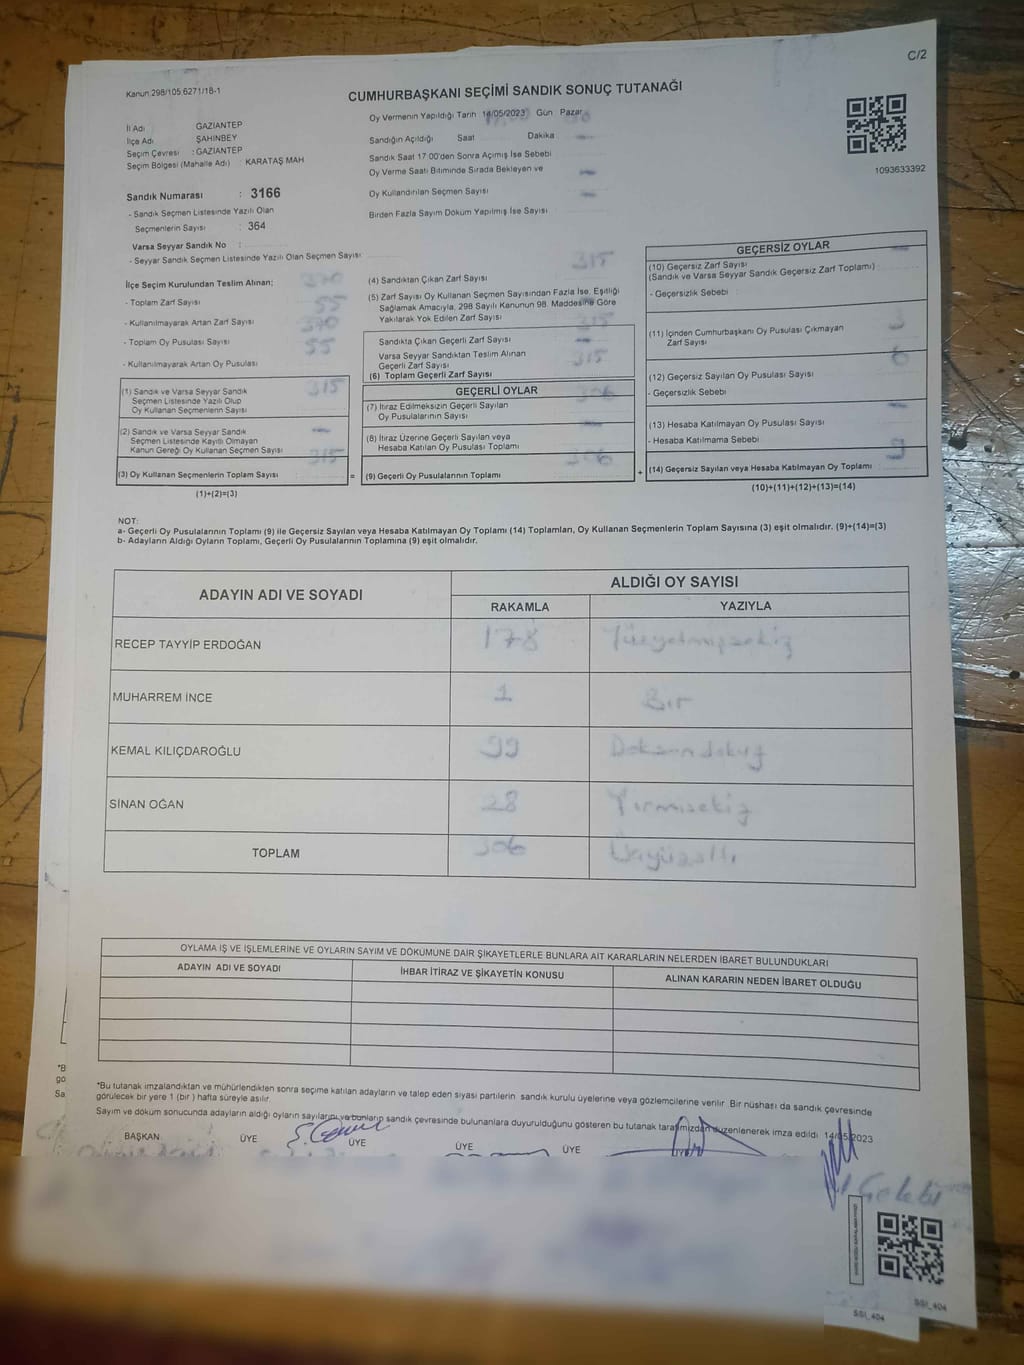 C/2
Kanun 298/105 6271/18-1
CUMHURBAŞKANI SEÇİMİ SANDIK SONUÇ TUTANAĞI
1093633392
İl Adı GAZIANTEP
İlçe Adı ŞAHINBEY
Seçim Çevresi : GAZIANTEP
Seçim Bölgesi (Mahalle Adı) : KARATAŞ MAH
Sandık Numarası : 3166
- Sandık Seçmen Listesinde Yazılı Olan
Seçmenlerin Sayısı : 364
Varsa Seyyar Sandık No :
- Seyyar Sandık Seçmen Listesinde Yazılı Olan Seçmen Sayısı
Oy Vermenin Yapıldığı Tarih 14/05/2023 Gün Pazar
Sandığın Açıldığı Saat Dakika
Sandık Saat 17 00'den Sonra Açımış İse Sebebi
Oy Verme Saati Bitiminde Sırada Bekleyen ve
Oy Kullandırılan Seçmen Sayısı
Birden Fazla Sayım Döküm Yapılmış İse Sayısı
İlçe Seçim Kurulundan Teslim Alınan; 370
- Toplam Zarf Sayısı 55
- Kullanılmayarak Artan Zarf Sayısı 370
- Toplam Oy Pusulası Sayısı 55
- Kullanılmayarak Artan Oy Pusulası
(1) Sandık ve Varsa Seyyar Sandık 315
Seçmen Listesinde Yazılı Olup
Oy Kullanan Seçmenlerin Sayısı
(2) Sandık ve Varsa Seyyar Sandık
Seçmen Listesinde Kayıtlı Olmayan
Kanun Gereği Oy Kullanan Seçmen Sayısı 315
(3) Oy Kullanan Seçmenlerin Toplam Sayısı =
(1)+(2)=(3)
315
(4) Sandıktan Çıkan Zarf Sayısı
(5) Zarf Sayısı Oy Kullanan Seçmen Sayısından Fazla İse, Eşitliği
Sağlamak Amacıyla, 298 Sayılı Kanunun 98. Maddesine Göre
Yakılarak Yok Edilen Zarf Sayısı 315
Sandıkta Çıkan Geçerli Zarf Sayısı
Varsa Seyyar Sandıktan Teslim Alınan
Geçerli Zarf Sayısı 315
(6) Toplam Geçerli Zarf Sayısı
GEÇERLİ OYLAR
306
(7) İtiraz Edilmeksizin Geçerli Sayılan
Oy Pusulalarının Sayısı
(8) İtiraz Üzerine Geçerli Sayılan veya
Hesaba Katılan Oy Pusulası Toplamı
306
(9) Geçerli Oy Pusulalarının Toplamı +
GEÇERSİZ OYLAR
(10) Geçersiz Zarf Sayısı
(Sandık ve Varsa Seyyar Sandık Geçersiz Zarf Toplamı)
- Geçersizlik Sebebi :
3
(11) İçinden Cumhurbaşkanı Oy Pusulası Çıkmayan
Zarf Sayısı
6
(12) Geçersiz Sayılan Oy Pusulası Sayısı
- Geçersizlik Sebebi
(13) Hesaba Katılmayan Oy Pusulası Sayısı
- Hesaba Katılmama Sebebi
9
(14) Geçersiz Sayılan veya Hesaba Katılmayan Oy Toplamı
(10)+(11)+(12)+(13)=(14)
NOT:
a- Geçerli Oy Pusulalarının Toplamı (9) ile Geçersiz Sayılan veya Hesaba Katılmayan Oy Toplamı (14) Toplamları, Oy Kullanan Seçmenlerin Toplam Sayısına (3) eşit olmalıdır. (9)+(14)=(3)
b- Adayların Aldığı Oyların Toplamı, Geçerli Oy Pusulalarının Toplamına (9) eşit olmalıdır.
ADAYIN ADI VE SOYADI ALDIĞI OY SAYISI
RAKAMLA YAZIYLA
RECEP TAYYİP ERDOĞAN 178 Yüzyetmişsekiz
MUHARREM İNCE 1 Bir
KEMAL KILIÇDAROĞLU 99 Doksandokuz
SİNAN OĞAN 28 Yirmisekiz
TOPLAM 306 Üçyüzaltı
OYLAMA İŞ VE İŞLEMLERİNE VE OYLARIN SAYIM VE DÖKÜMÜNE DAİR ŞİKAYETLERLE BUNLARA AİT KARARLARIN NELERDEN İBARET BULUNDUKLARI
ADAYIN ADI VE SOYADI İHBAR İTİRAZ VE ŞİKAYETİN KONUSU ALINAN KARARIN NEDEN İBARET OLDUĞU
*Bu tutanak imzalandıktan ve mühürlendikten sonra seçime katılan adayların ve talep eden siyasi partilerin sandık kurulu üyelerine veya gözlemcilerine verilir Bir nüshası da sandık çevresinde
görülecek bir yere 1 (bir ) hafta süreyle asılır
Sayım ve döküm sonucunda adayların aldığı oyların sayılarını ve bunların sandık çevresinde bulunanlara duyurulduğunu gösteren bu tutanak tarafımızdan düzenlenerek imza edildi 14/05/2023
BAŞKAN ÜYE ÜYE ÜYE ÜYE
SSI_404
SSI_404